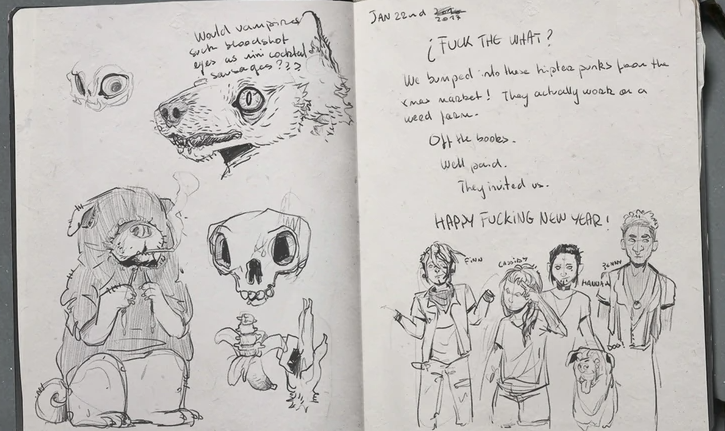 Would vampires
suck bloodshot
eyes as mini cocktail
sausages???
JAN 22nd 2017
¿FUCK THE WHAT?
We bumped into these hipster punks from the
xmas market! They actually work on a
weed farm.
Off the books.
Well paid.
They invited us.
HAPPY FUCKING NEW YEAR!
FINN
CASSIDY
HANNAH
DOG!